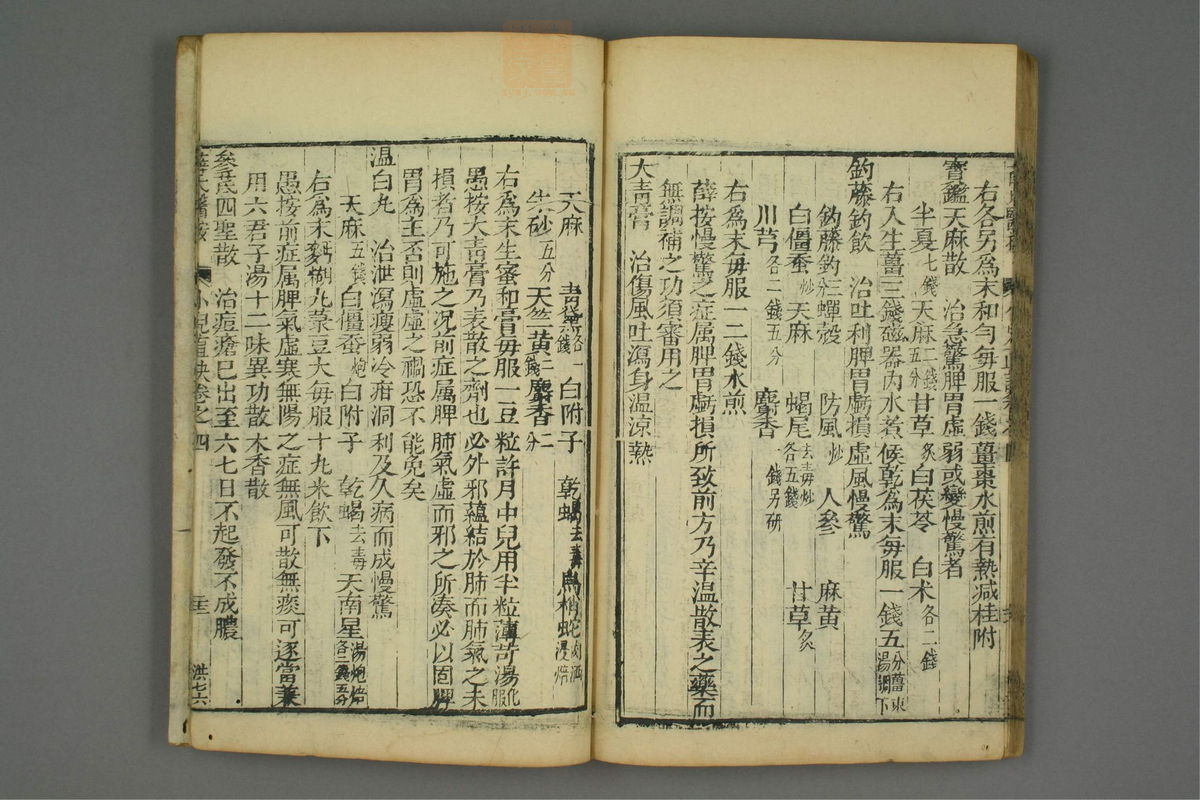 右各另為末和勻每服一錢薑棗水煎有熱減桂附
寶鑑天麻散　治急驚脾胃虛弱或變慢驚者
半夏七錢　天麻二錢五分　甘草炙　白茯苓　白朮各二錢
右入生薑三錢磁器內水煮候乾為末每服一錢五分薑棗湯調下
釣藤釣飲　治吐利脾胃虧損虛風慢驚
釣藤釣三分　蟬殼　防風炒　人參　麻黃
白僵蚕炒　天麻　蝎尾去毒炒各五錢　甘草炙
川芎各二錢五分　麝香一錢另研
右為末每服一二錢水煎
薛按慢驚之症属脾胃虧損所致前方乃辛温散表之藥而
無調補之功須審用之
大青膏　治傷風吐瀉身温涼熱
天麻　青黛各一錢　白附子　乾蝎去毒　烏梢蛇肉酒浸焙
朱砂五分　天竺黃二錢　麝香二分
右為末生蜜和膏每服一豆粒許月中兒用半粒薄荷湯化服
愚按大青膏乃表散之劑也必外邪蘊結於肺而肺氣之未
損者乃可施之况前症属脾肺氣虛而邪之所湊必以固脾
胃為主否則虛虛之禍恐不能免矣
温白丸　治泄瀉瘦弱冷疳洞利及久病而成慢驚
天麻五錢　白僵蚕炮　白附子　乾蝎去毒　天南星湯炮焙各二錢五分
右為末麪糊丸菉豆大每服十九米飲下
愚按前症属脾氣虛寒無陽之症無風可散無痰可逐當兼
用六君子湯十二味異功散木香散
叅芪四聖散　治痘瘡已出至六七日不起發不成膿
薛氏醫按　小兒直訣卷之四　洪七六